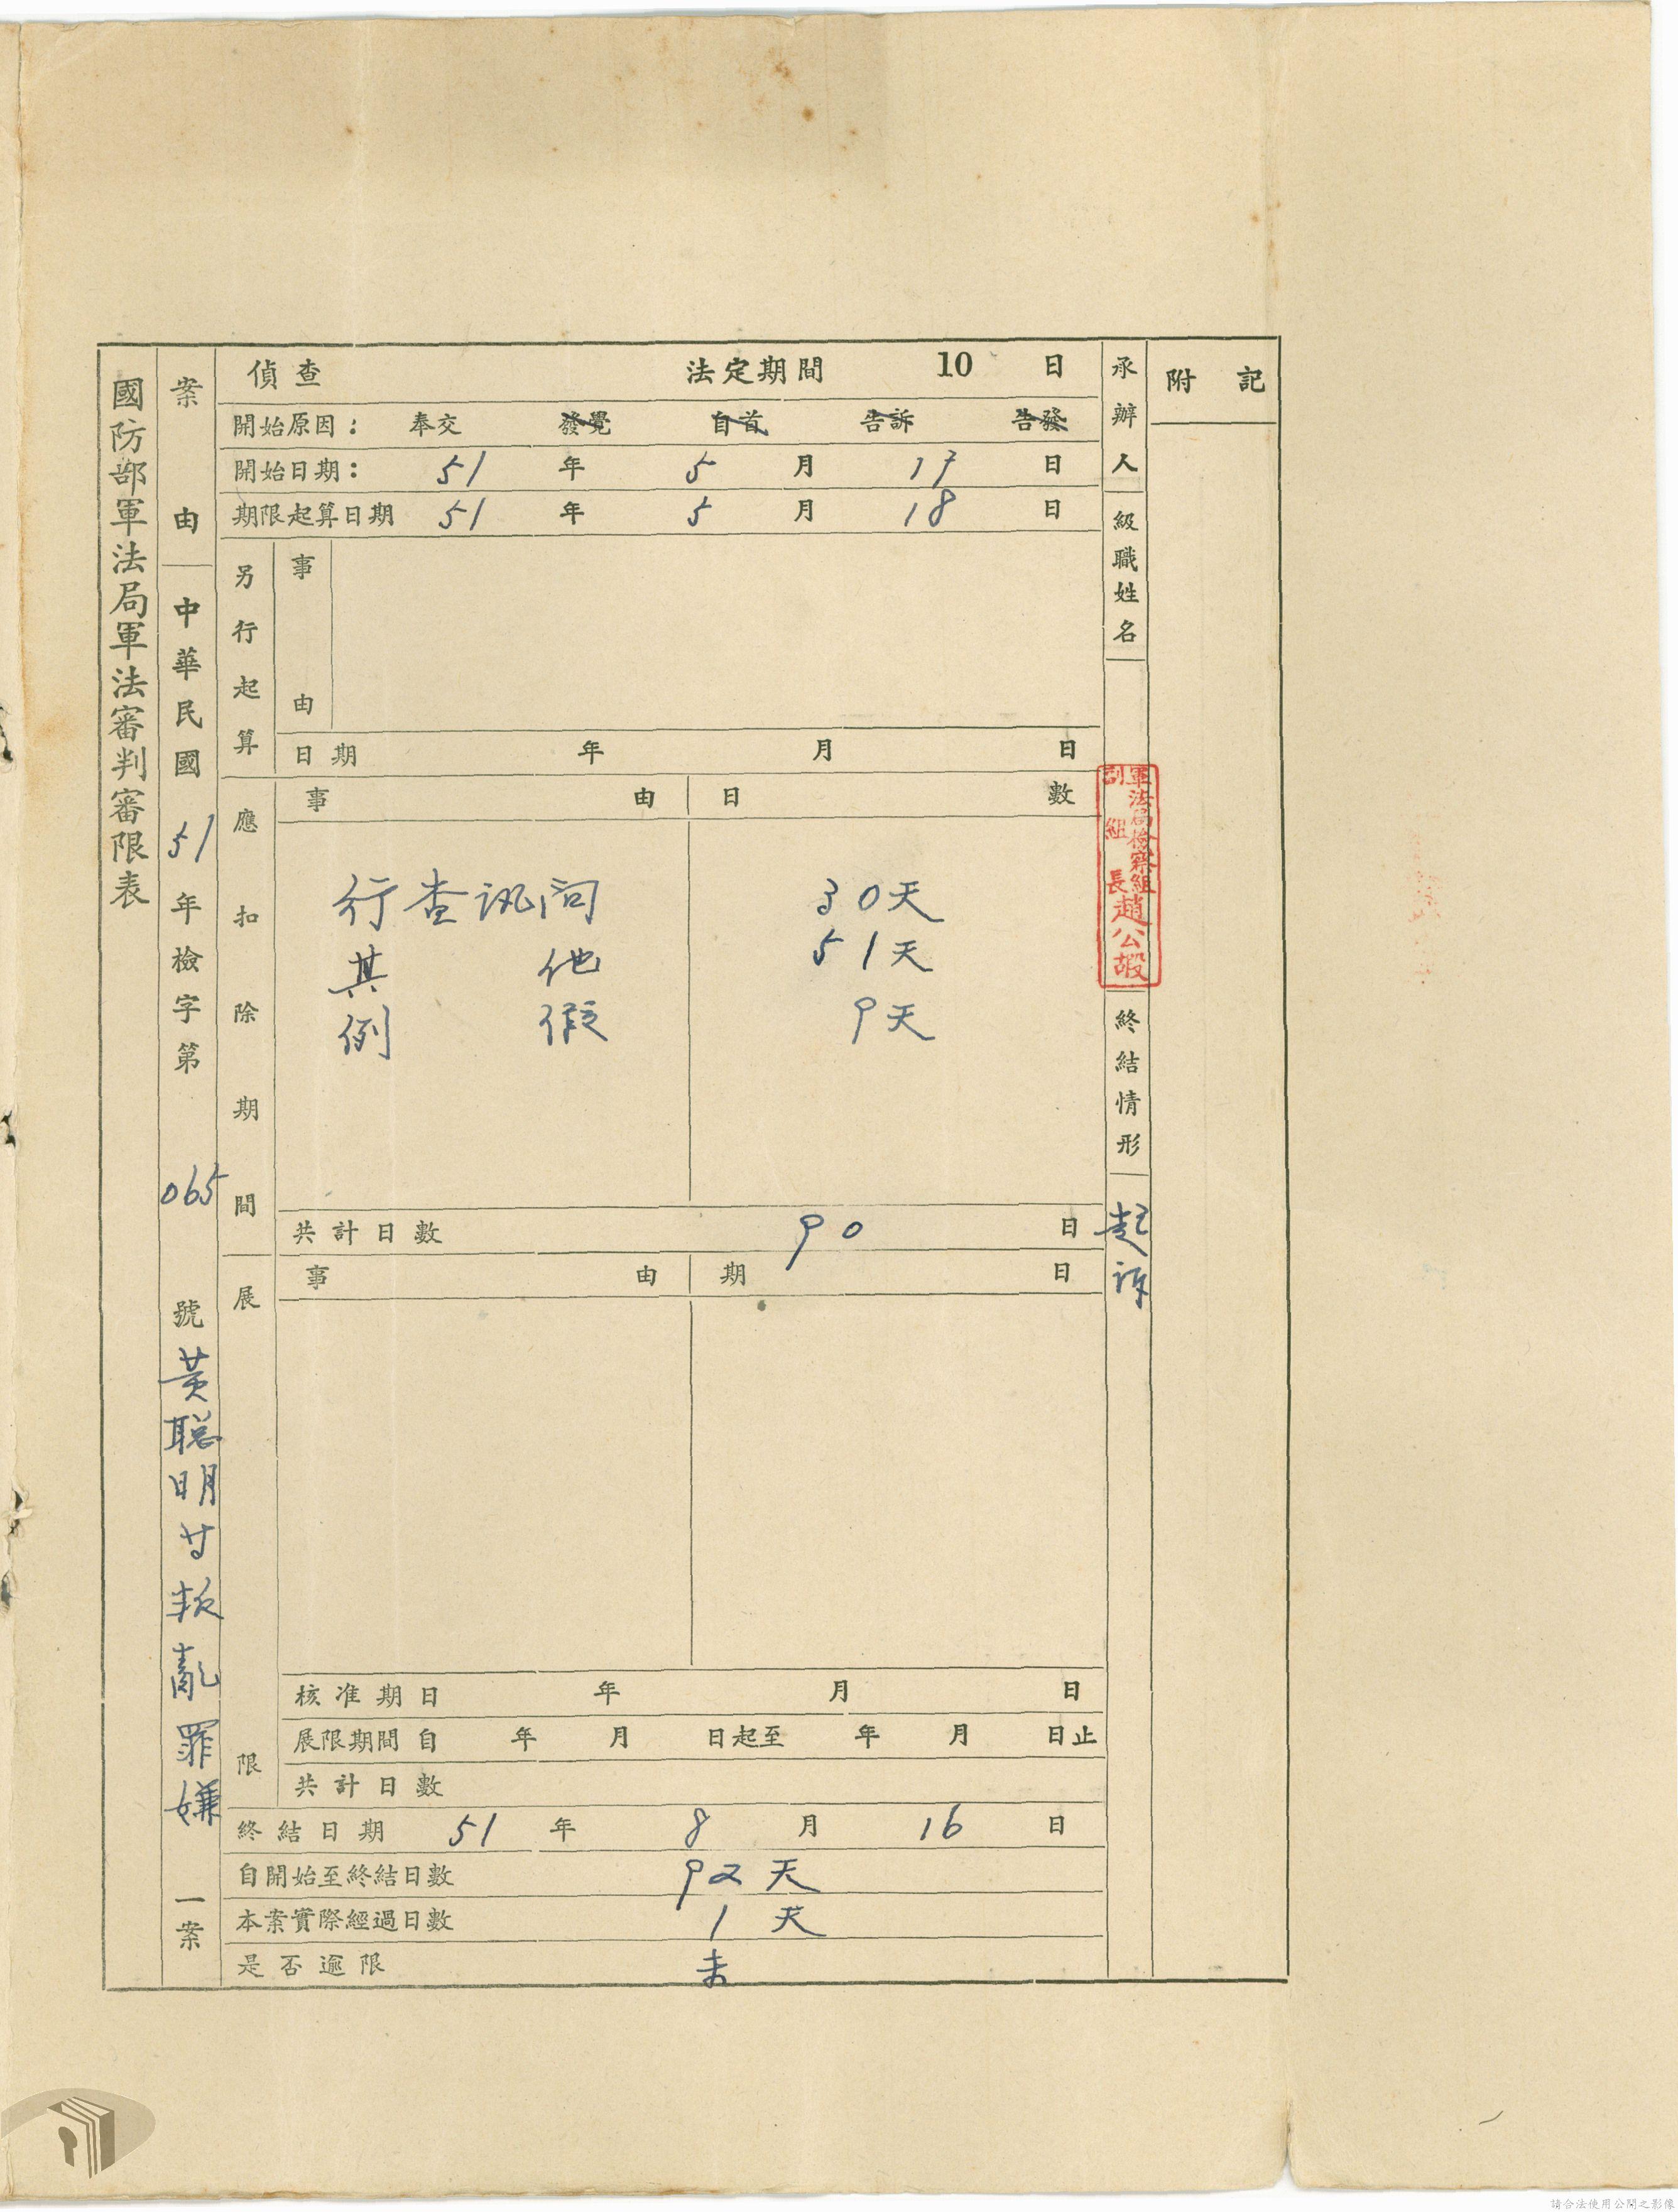 國防部軍法局軍法審判審限表
案由
中華民國51年檢字第065號黃聰明等叛亂罪嫌一案
偵查 法定期間 10 日
開始原因：奉交 發覺 自首 告訴 告發
開始日期：51年5月17日
期限起算日期 51年5月18日
另行起算
事由
日期 年 月 日
應扣除期間
事由 日數
行查訊問 30天
其他 51天
例假 9天
共計日數 90日
展限
事由 期日
核准期日 年 月 日
展限期間自 年 月 日起至 年 月 日止
共計日數
終結日期 51年8月16日
自開始至終結日數 92天
本案實際經過日數 1天
是否逾限 未
承辦人
級職姓名
軍法局檢察組
副組長
趙公嘏
終結情形
起訴
附記
請合法使用公開之影像